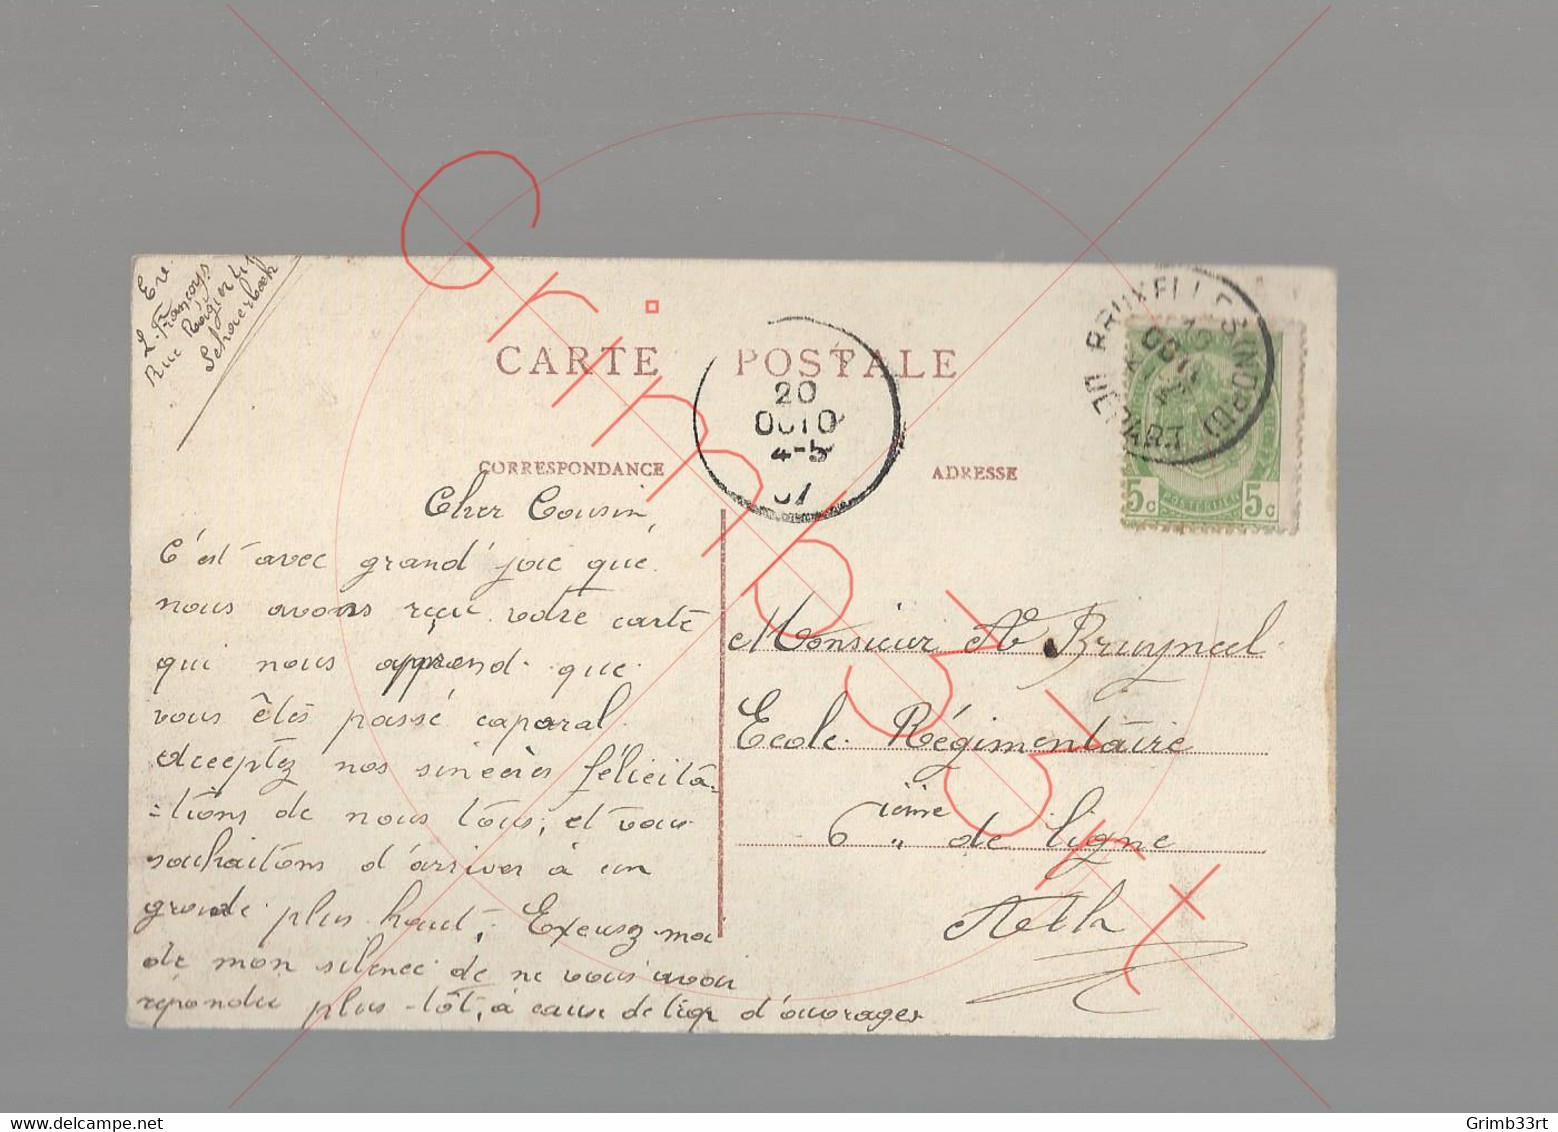 Ere.
L. François
Rue Rogier
Schaerbeek
CARTE POSTALE
CORRESPONDANCE
ADRESSE
20
OCTO
4-5
07
BRUXELLES (NORD)
DEPART
5c 5c
Cher Cousin,
C'est avec grand' joie que
nous avons reçu votre carte
qui nous apprend que
vous êtes passé caporal.
acceptez nos sincères félicita-
-tions de nous tous, et vous
souhaitons d'arriver à un
grade plus haut, Excusez-moi
de mon silence de ne vous avoir
répondu plus-tôt, à cause de trop d'ouvrages
Monsieur A Bruyneel
Ecole Régimentaire
6 ième de ligne
Aeth
Grimb33rt
delcampe.net
Grimb33rt